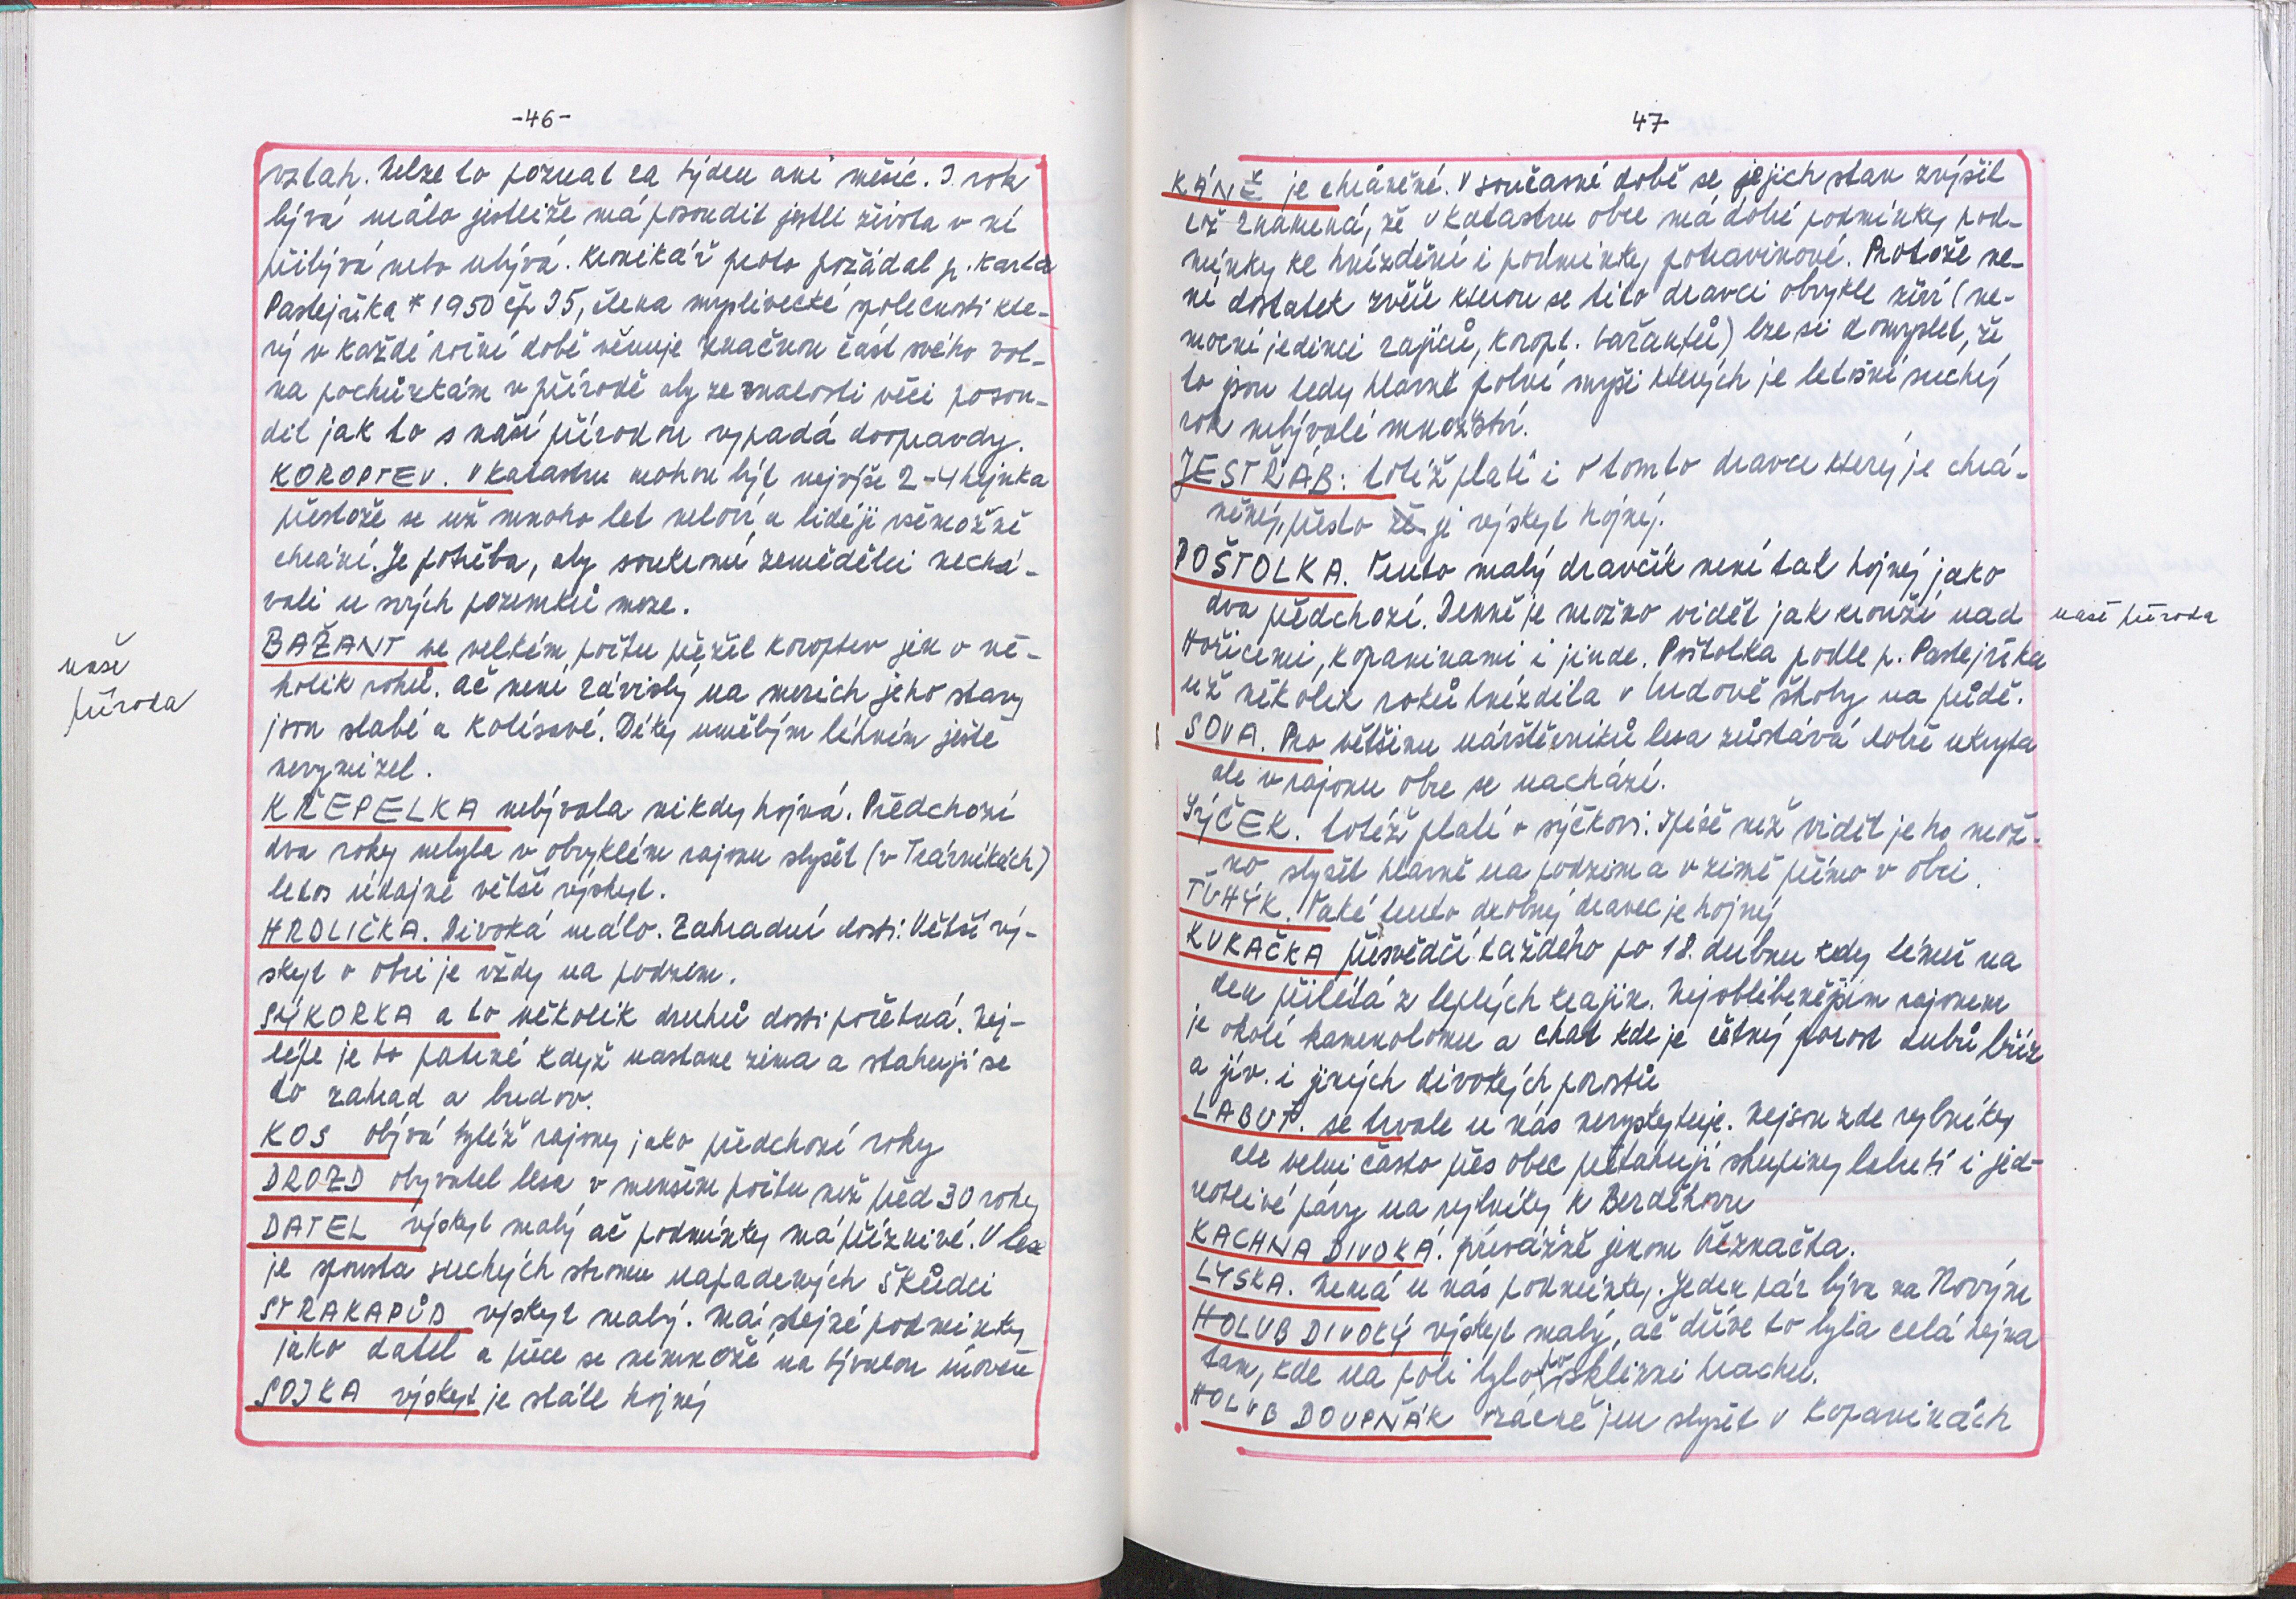 -46-
vztah. Nelze to poznat za týden ani měsíc. I rok
bývá málo jestliže má posoudit jestli života v ní
přibývá nebo ubývá. Kronikář proto požádal p. Karla
Pastejříka * 1950 čp 35, člena myslivecké společnosti kte-
rý v každé roční době věnuje značnou část svého vol-
na pochůzkám v přírodě aby ze znalosti věci posou-
dil jak to s naší přírodou vypadá doopravdy.
KOROPTEV. V katastru mohou být nejvýše 2-4 hejnka
přestože se už mnoho let neloví a lidé ji všemožně
chrání. Je potřeba, aby soukromí zemědělci nechá-
vali u svých pozemků meze.
BAŽANT ve velkém počtu přežil koroptev jen o ně-
kolik roků. Ač není závislý na mezích jeho stavy
jsou slabé a kolísavé. Díky umělým líhním ještě
nevymizel.
KŘEPELKA nebývala nikdy hojná. Předchozí
dva roky nebyla v obvyklém rajonu slyšet (v Trávníkách)
letos údajně větší výskyt.
HRDLIČKA. Divoká málo. Zahradní dosti. Větší vý-
skyt v obci je vždy na podzim.
SÝKORKA a to několik druhů dosti početná. Nej-
lépe je to patrné když nastane zima a stahují se
do zahrad a budov.
KOS obývá tytéž rajony jako předchozí roky
DROZD obyvatel lesa v menším počtu než před 30 roky
DATEL výskyt malý ač podmínky má příznivé. V lese
je spousta suchých stromu napadených škůdci
STRAKAPŮD výskyt malý. Má stejné podmínky
jako datel a přece se nemnoží na bývalou úroveň
SOJKA výskyt je stále hojný
naše
příroda
47
KÁNĚ je chráněné. V současné době se jejich stav zvýšil
což znamená, že v katastru obce má dobré podmínky pod-
mínky ke hnízdění i podmínky potravinové. Protože ne-
ní dostatek zvěře kterou se tito dravci obvykle živí (ne-
mocní jedinci zajíců, koropt. bažantů) lze si domyslet, že
to jsou tedy hlavně polní myši kterých je letošní suchý
rok nebývalé množství.
JESTŘÁB: totéž platí i o tomto dravci který je chrá-
něný, přesto že je výskyt hojný.
POŠTOLKA. Tento malý dravčík není tak hojný jako
dva předchozí. Denně je možno vidět jak krouží nad
Hořicemi, Kopaninami i jinde. Poštolka podle p. Pastejříka
už několik roků hnízdila v budově školy na půdě.
SOVA. Pro většinu návštěvníků lesa zůstává dobře ukryta
ale v rajonu obce se nachází.
SÝČEK. totéž platí o sýčkovi. Spíše než vidět je ho mož-
no slyšet hlavně na podzim a v zimě přímo v obci.
ŤUHÝK. Také tento drobný dravec je hojný
KUKAČKA přesvědčí každého po 18. dubnu kdy téměř na
den přilétá z teplých krajin. Nejoblíbenějším rajonem
je okolí kamenolomu a chat kde je četný porost dubů bříz
a jív. i jiných divokých porostů
LABUŤ. se trvale u nás nevyskytuje. Nejsou zde rybníky
ale velmi často přes obec přetahují skupinky labutí i jed-
notlivé páry na rybníky k Berdětkovu
KACHNA DIVOKÁ. převážně jenom Březnačka.
LYSKA. Nemá u nás podmínky. Jeden pár bývá na Novým
HOLUB DIVOKÝ výskyt malý, ač dříve to byla celá hejna
tam, kde na poli bylo po sklizni hrachu.
HOLUB DOUPŇÁK vzácně jen slyšet v Kopaninách
naše příroda